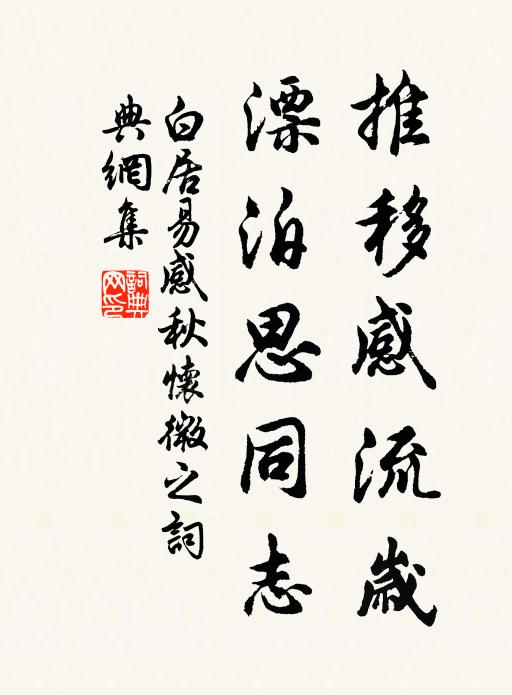 推移感流歲
漂泊思同志
白居易感秋懷微之詞
典網集
詞典網印